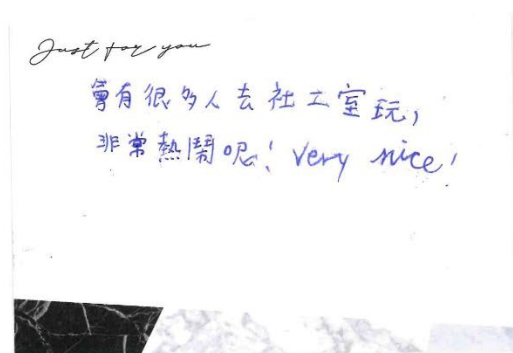 Just for you
會有很多人去社工室玩,
非常熱鬧呢! Very nice!